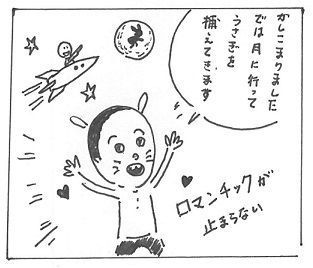 かしこまりました
では月に行って
うさぎを
捕えてきます
ロマンチックが
止まらない